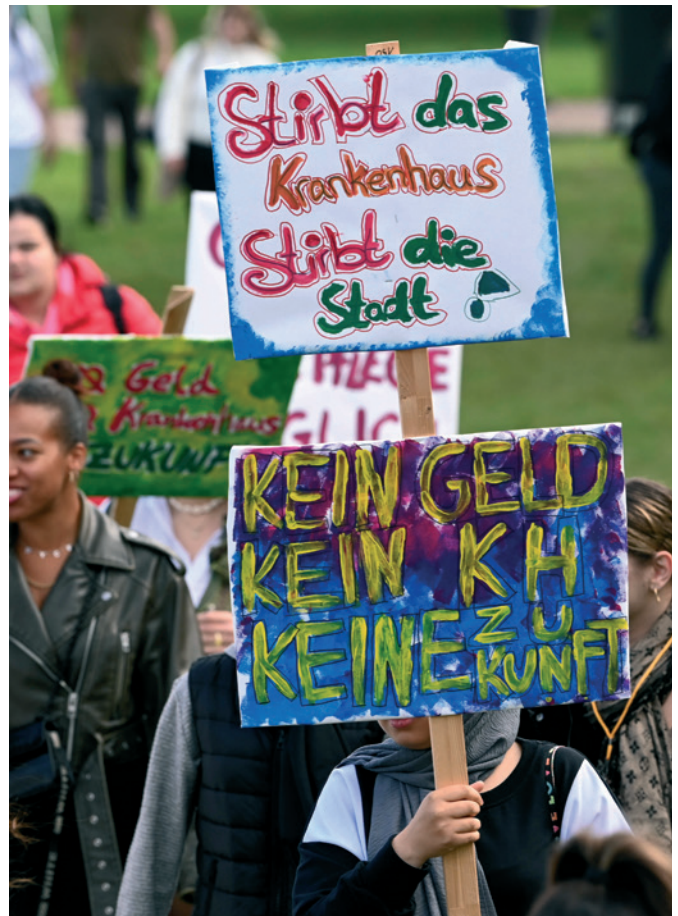 Stirbt das
Krankenhaus
Stirbt die
Stadt!
Geld
Krankenhaus
ZUKUNF
KEIN GELD
KEIN KH
KEINE ZU
KUNFT